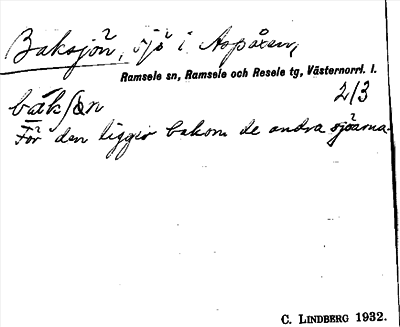 Baksjön, sjö i Aspåsen,
Ramsele sn, Ramsele och Resele tg, Västernorrl. l.
2/3
För den ligger bakom de andra sjöarna.
C. LINDBERG 1932.